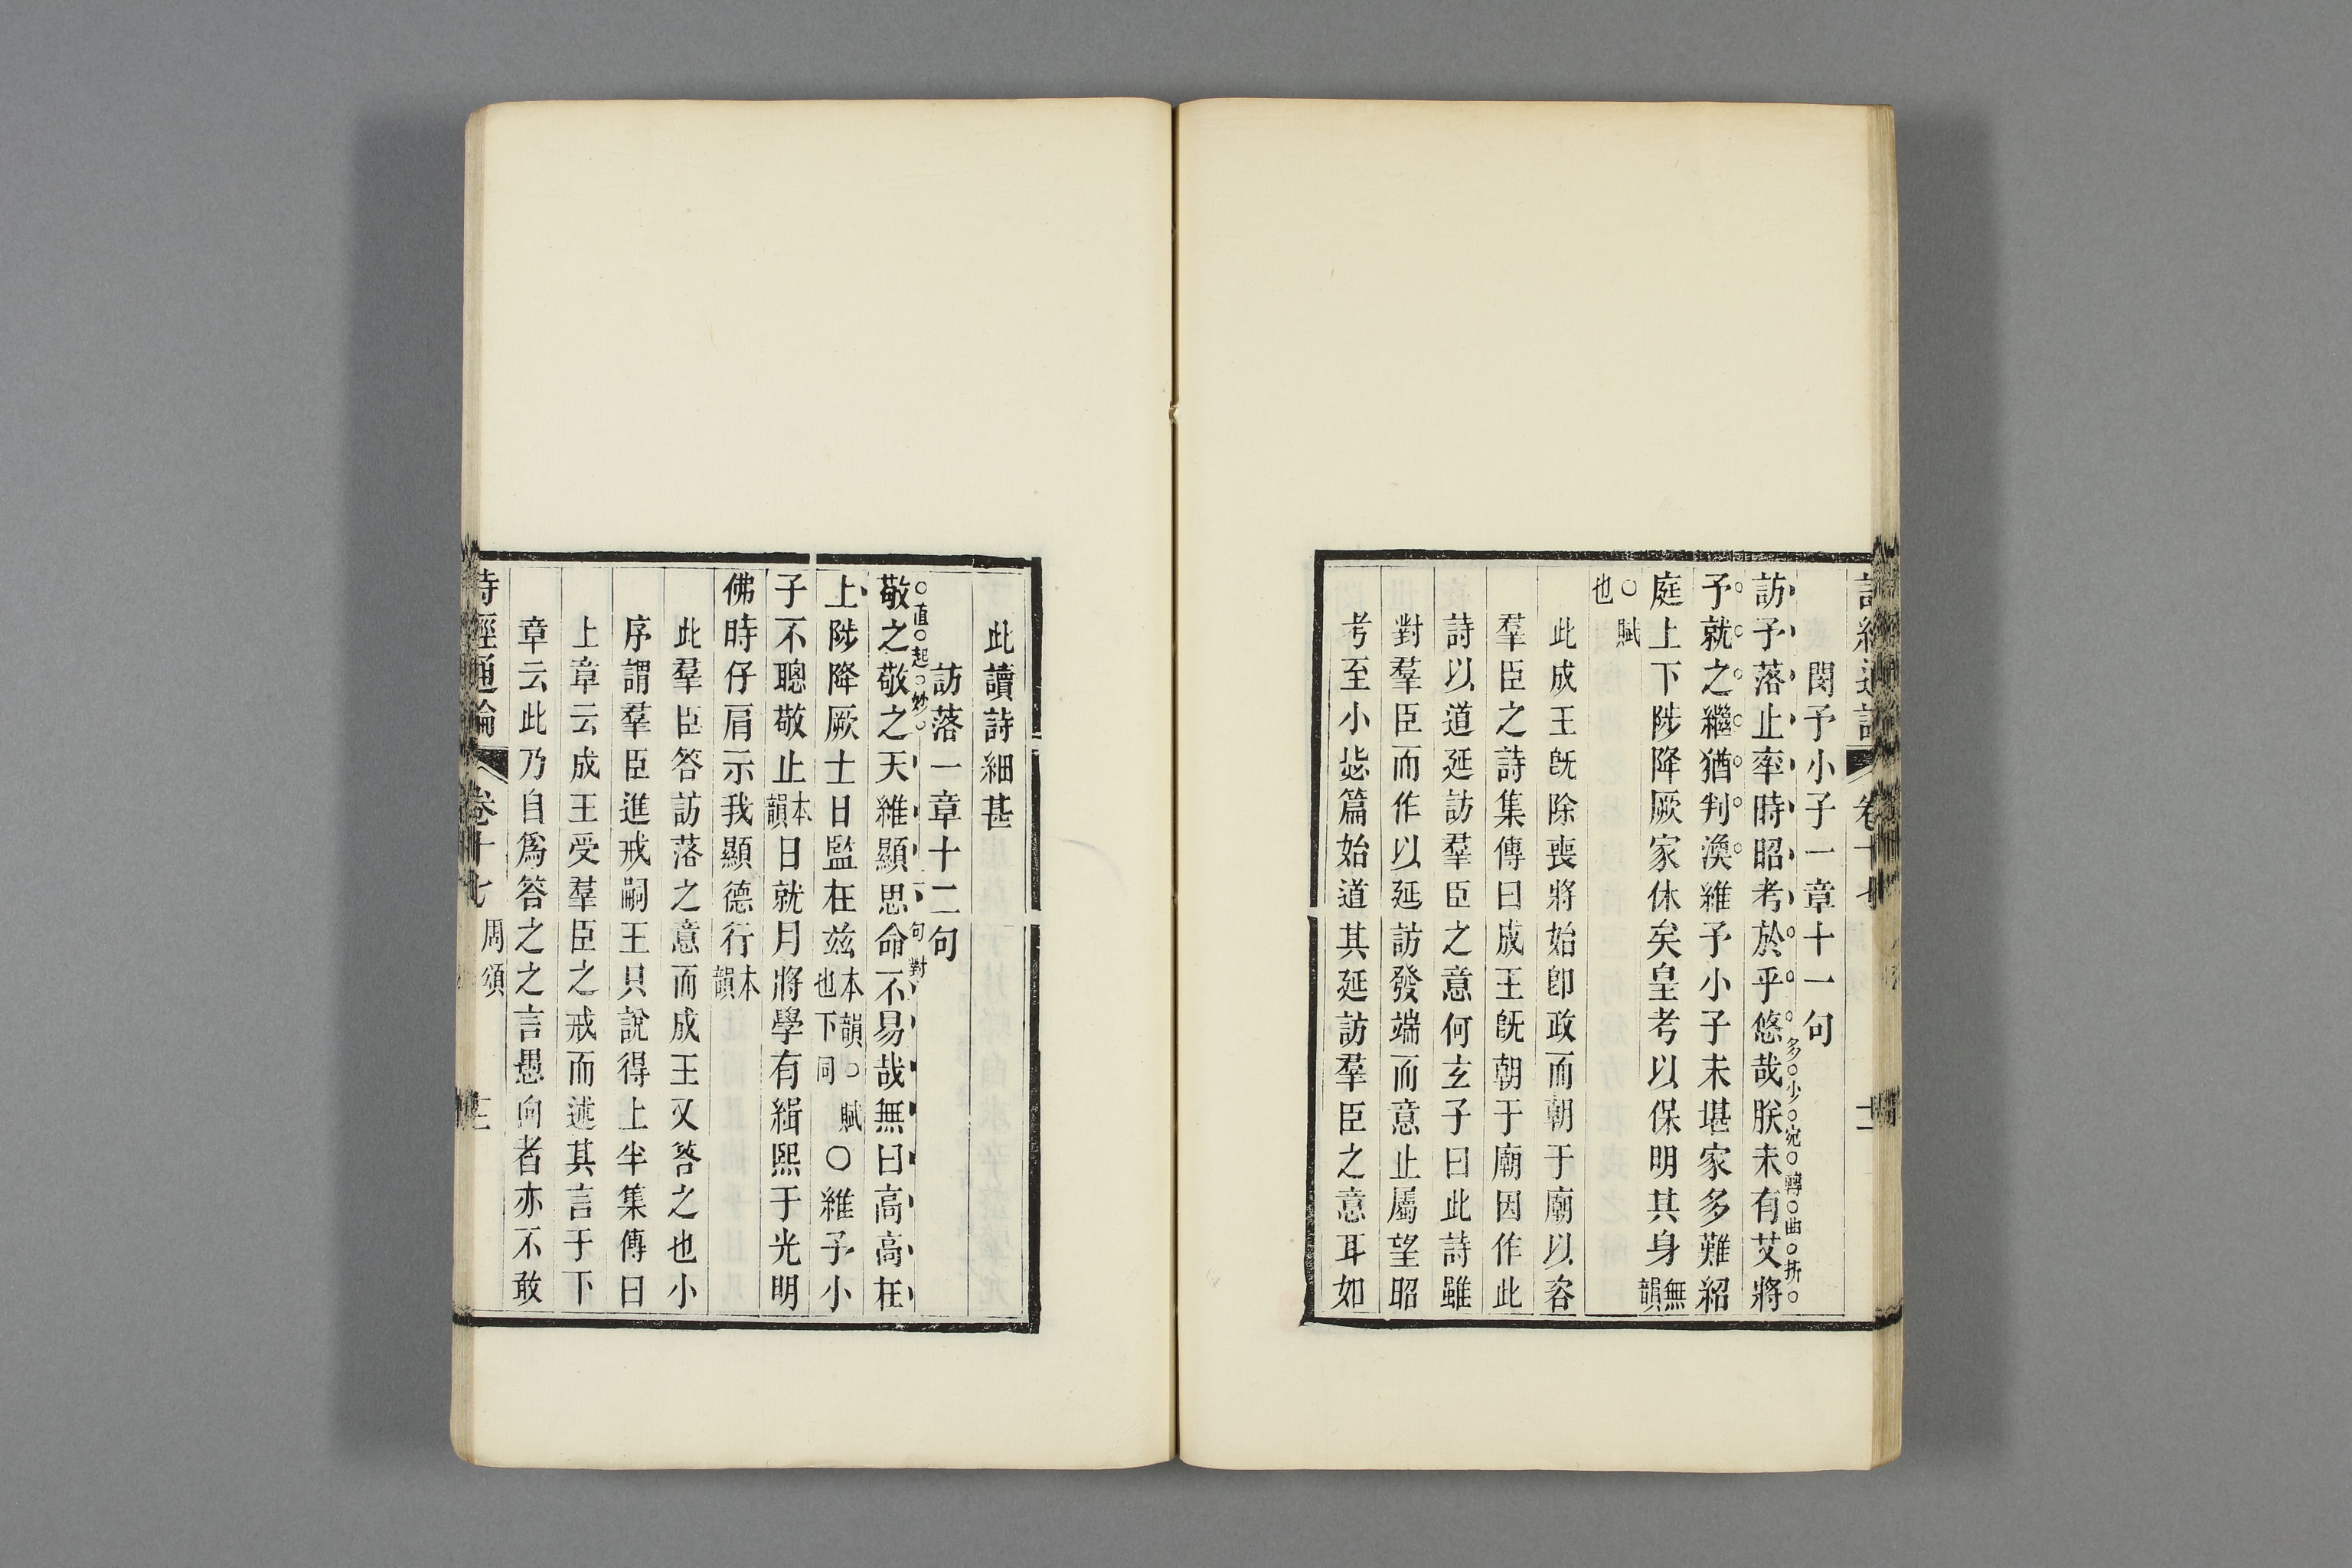 閔予小子一章十一句
訪予落止率時昭考於乎悠哉朕未有艾將
多少宛轉曲折
予就之繼猶判渙維予小子未堪家多難紹
庭上下陟降厥家休矣皇考以保明其身無韻
○賦也
此成王旣除喪將始卽政而朝于廟以咨
羣臣之詩集傳曰成王旣朝于廟因作此
詩以道延訪羣臣之意何玄子曰此詩雖
對羣臣而作以延訪發端而意止屬望昭
考至小毖篇始道其延訪羣臣之意耳如
此讀詩細甚
訪落一章十二句
直起妙
句對
敬之敬之天維顯思命不易哉無曰高高在
上陟降厥士日監在茲本韻○賦也下同○維予小
子不聰敬止本韻日就月將學有緝熙于光明
佛時仔肩示我顯德行本韻
此羣臣答訪落之意而成王又答之也小
序謂羣臣進戒嗣王只說得上半集傳曰
上章云成王受羣臣之戒而述其言于下
章云此乃自爲答之之言愚向者亦不敢
詩經通論 卷十七 周頌